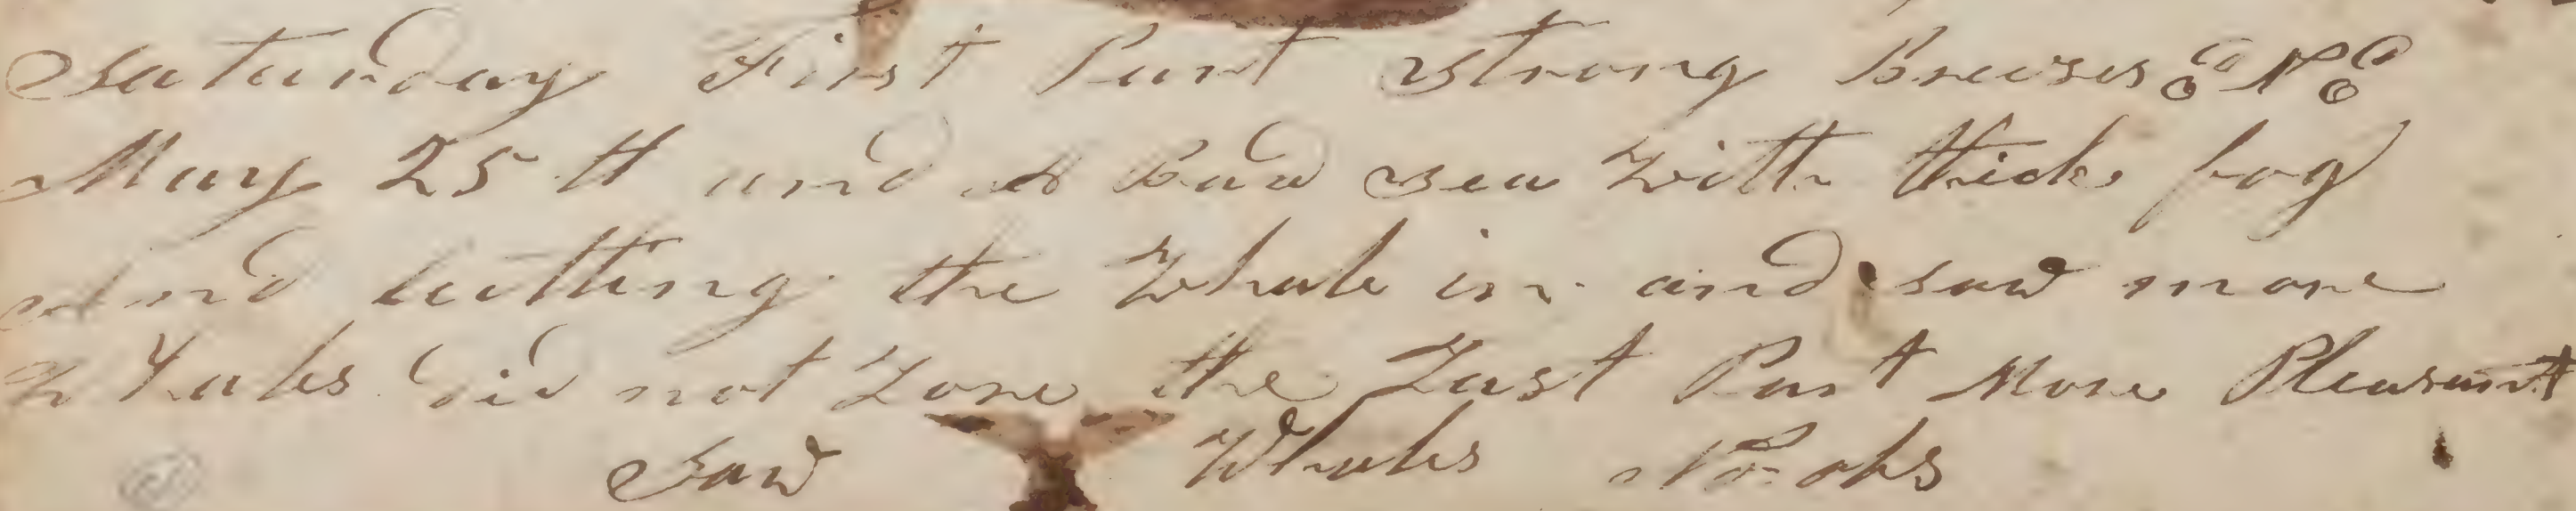 Saturday First Part Strong Breases
May 25 th and A Bad sea With thick fog
And cutting the Whale in and saw more
Whales did not Lore the Last Part More Pleasant
Saw Whales No obs